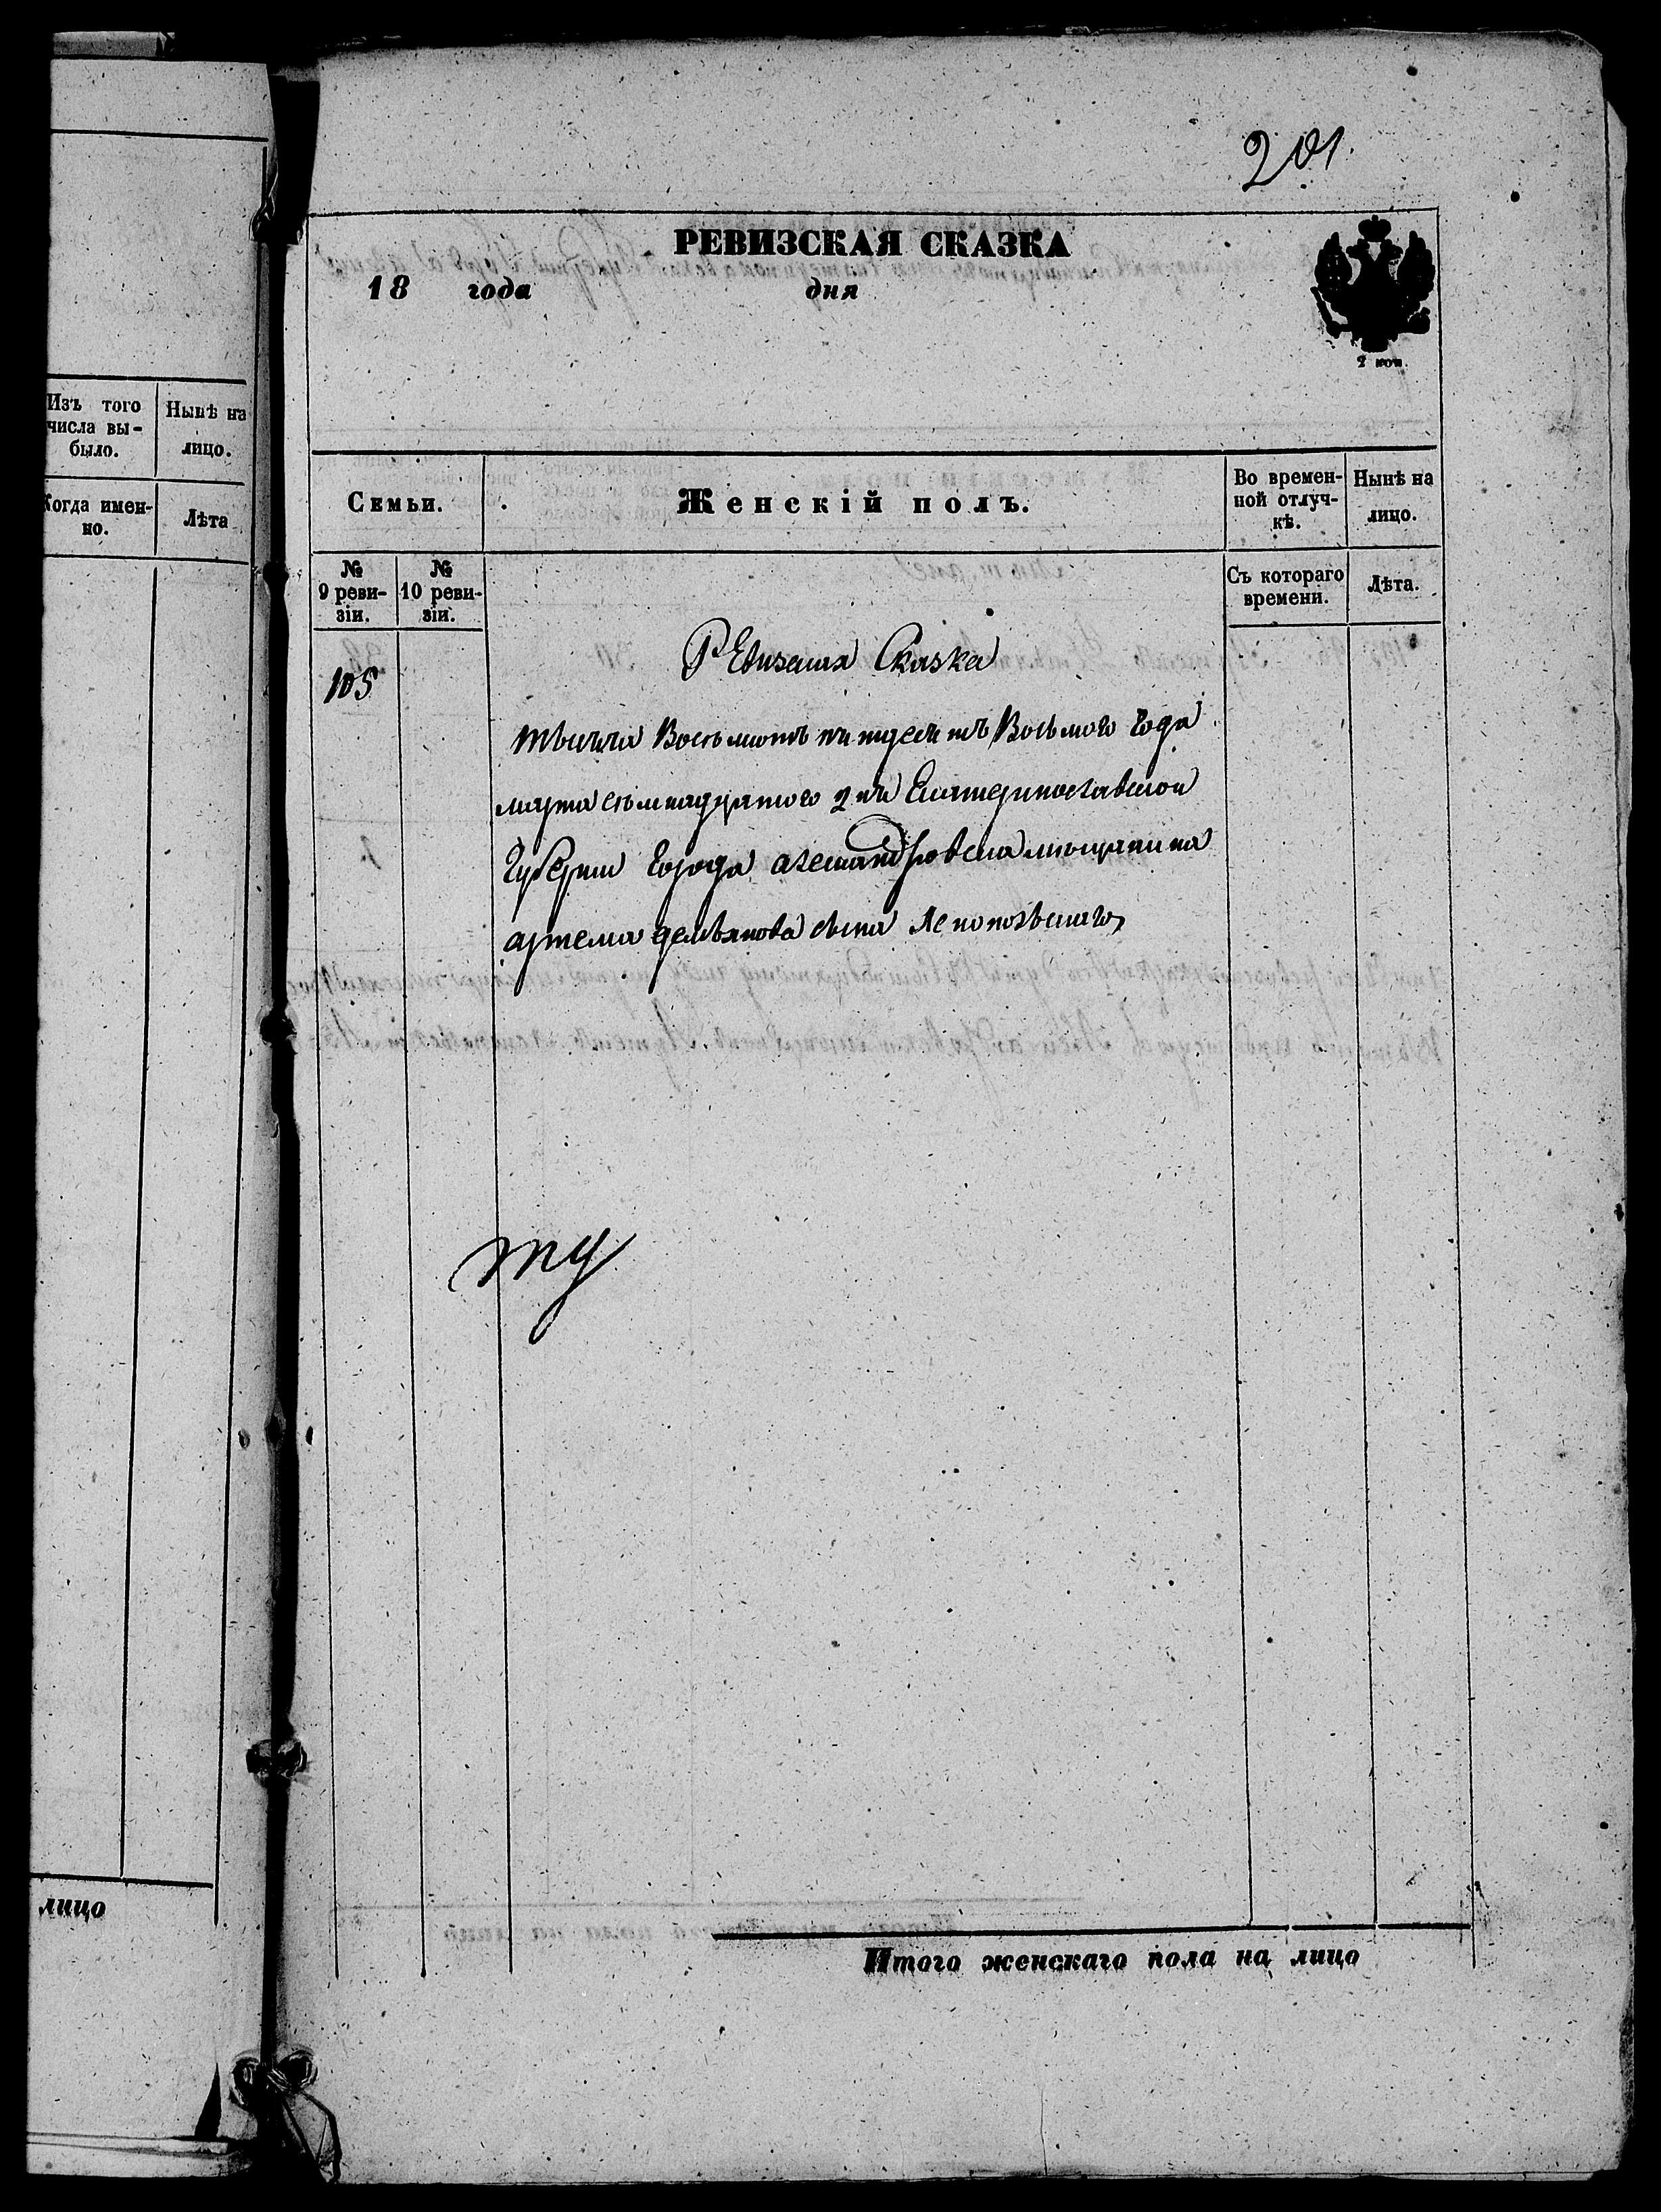 201.
РЕВИЗСКАЯ СКАЗКА
18 года дня
2 коп.
Изъ того числа вы-
было.
Нынѣ на
лицо.
Когда имен-
но.
Лѣта
лицо
Семьи.
Женскій полъ.
Во времен-
ной отлуч-
кѣ.
Нынѣ на
лицо.
№
9 реви-
зіи.
№
10 реви-
зіи.
Съ котораго
времени.
Лѣта.
105
Ревизская Сказка
тысяча Восемьсотъ пятдесятъ Восьмого года
марта семнадцатого дня Екатеринославской
Губернии города александровска мещанина
артема демьянова сына
Итого женскаго пола на лицо